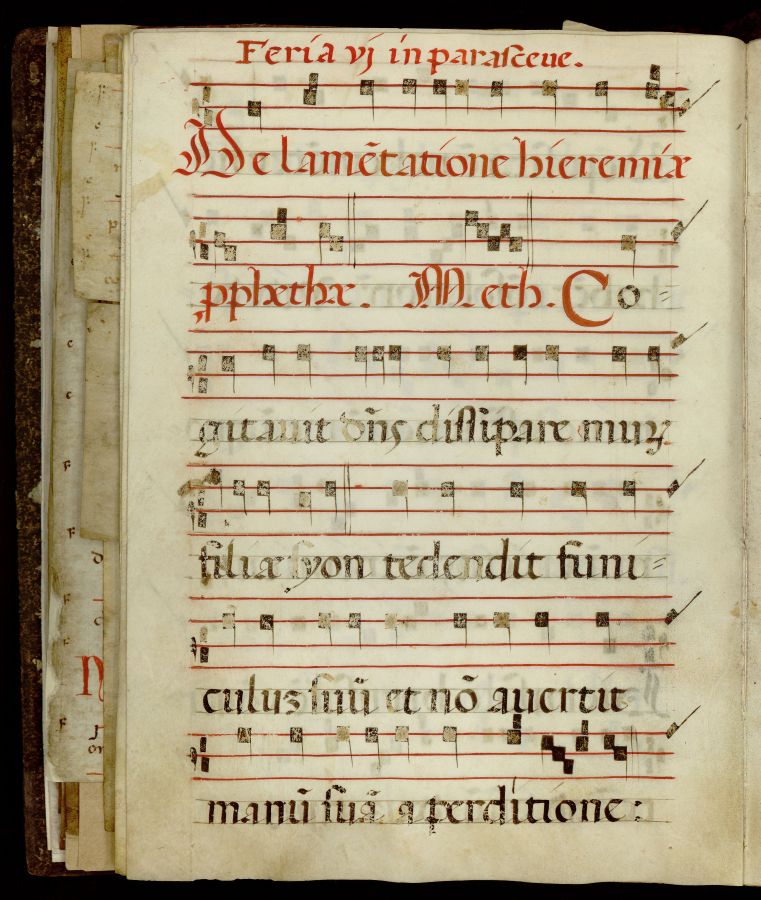 Feria vj in parasceue.
De lamẽtatione hieremiæ
ꝓphethæ. Meth. Co=
gitauit dñs dissipare murꝝ
filiæ syon tedendit funi=
culuz suũ et nõ auertit
manũ suã a perditione: